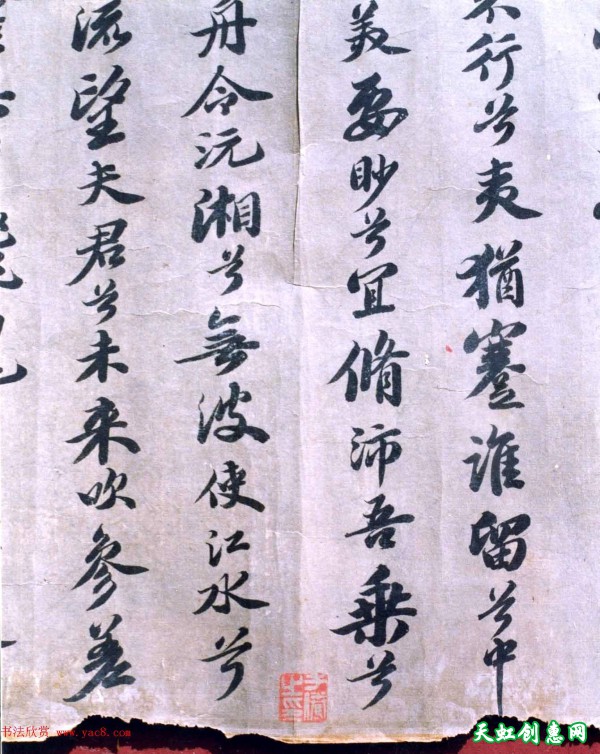 不行兮夷猶蹇誰留兮中
美要眇兮宜脩沛吾乘兮
舟令沅湘兮無波使江水兮
流望夫君兮未来吹參差
书法欣赏 www.yac8.com
天虹创惠网